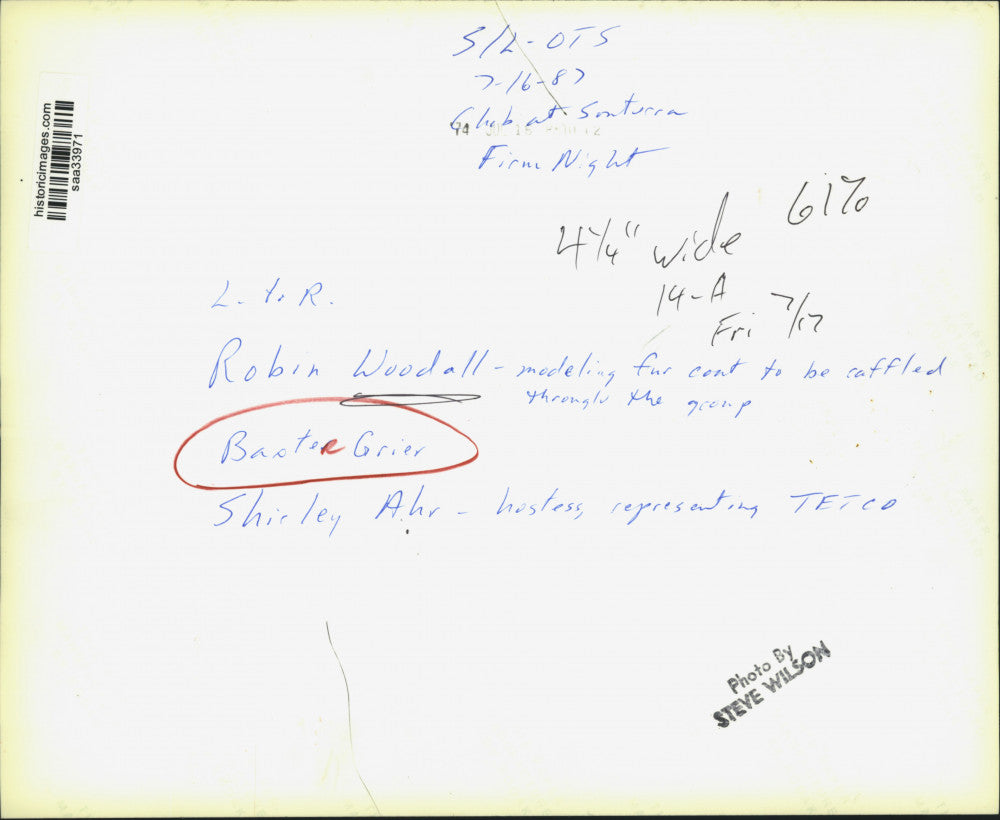 S/L-OTS
7-16-87
Club at Sonterra
Firm Night
historicimages.com
saa33971
4 1/4" wide 61%
14-A
Fri 7/17
L. to R.
Robin Woodall - modeling fur coat to be raffled
through the group
Baxter Grier
Shirley Ahr - hostess, representing TETCO
Photo By
STEVE WILSON